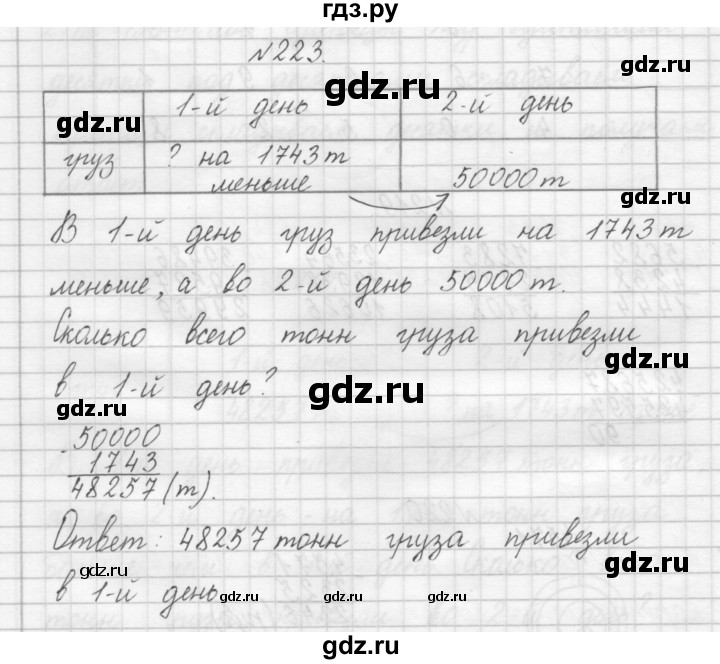 гдз.ру
№223.
1-й день 2-й день
gdz.ru gdz.ru gdz.ru
груз ? на 1743 т
меньше 50000 т
gdz.ru
В 1-й день груз привезли на 1743 т
меньше, а во 2-й день 50000 т.
Сколько всего тонн груза привезли
gdz.ru
в 1-й день?
gdz.ru gdz.ru
- 50000
1743
48257 (т).
Ответ: 48257 тонн груза привезли
gdz.ru gdz.ru
в 1-й день.
gdz.ru gdz.ru gdz.ru gdz.ru
gdz.ru